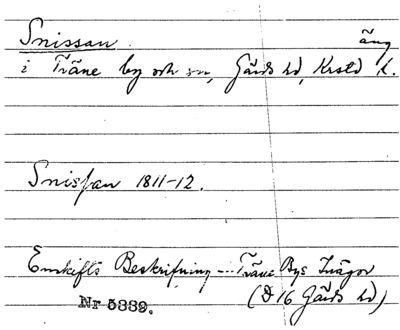 Snissan. äng
i Träne by och sn, Gärds hd, Krstd l.
Snisſan 1811-12.
Enskifts Beskrifning --- Träne Bys Inägor
Nr 5839. (D 16 Gärds hd)